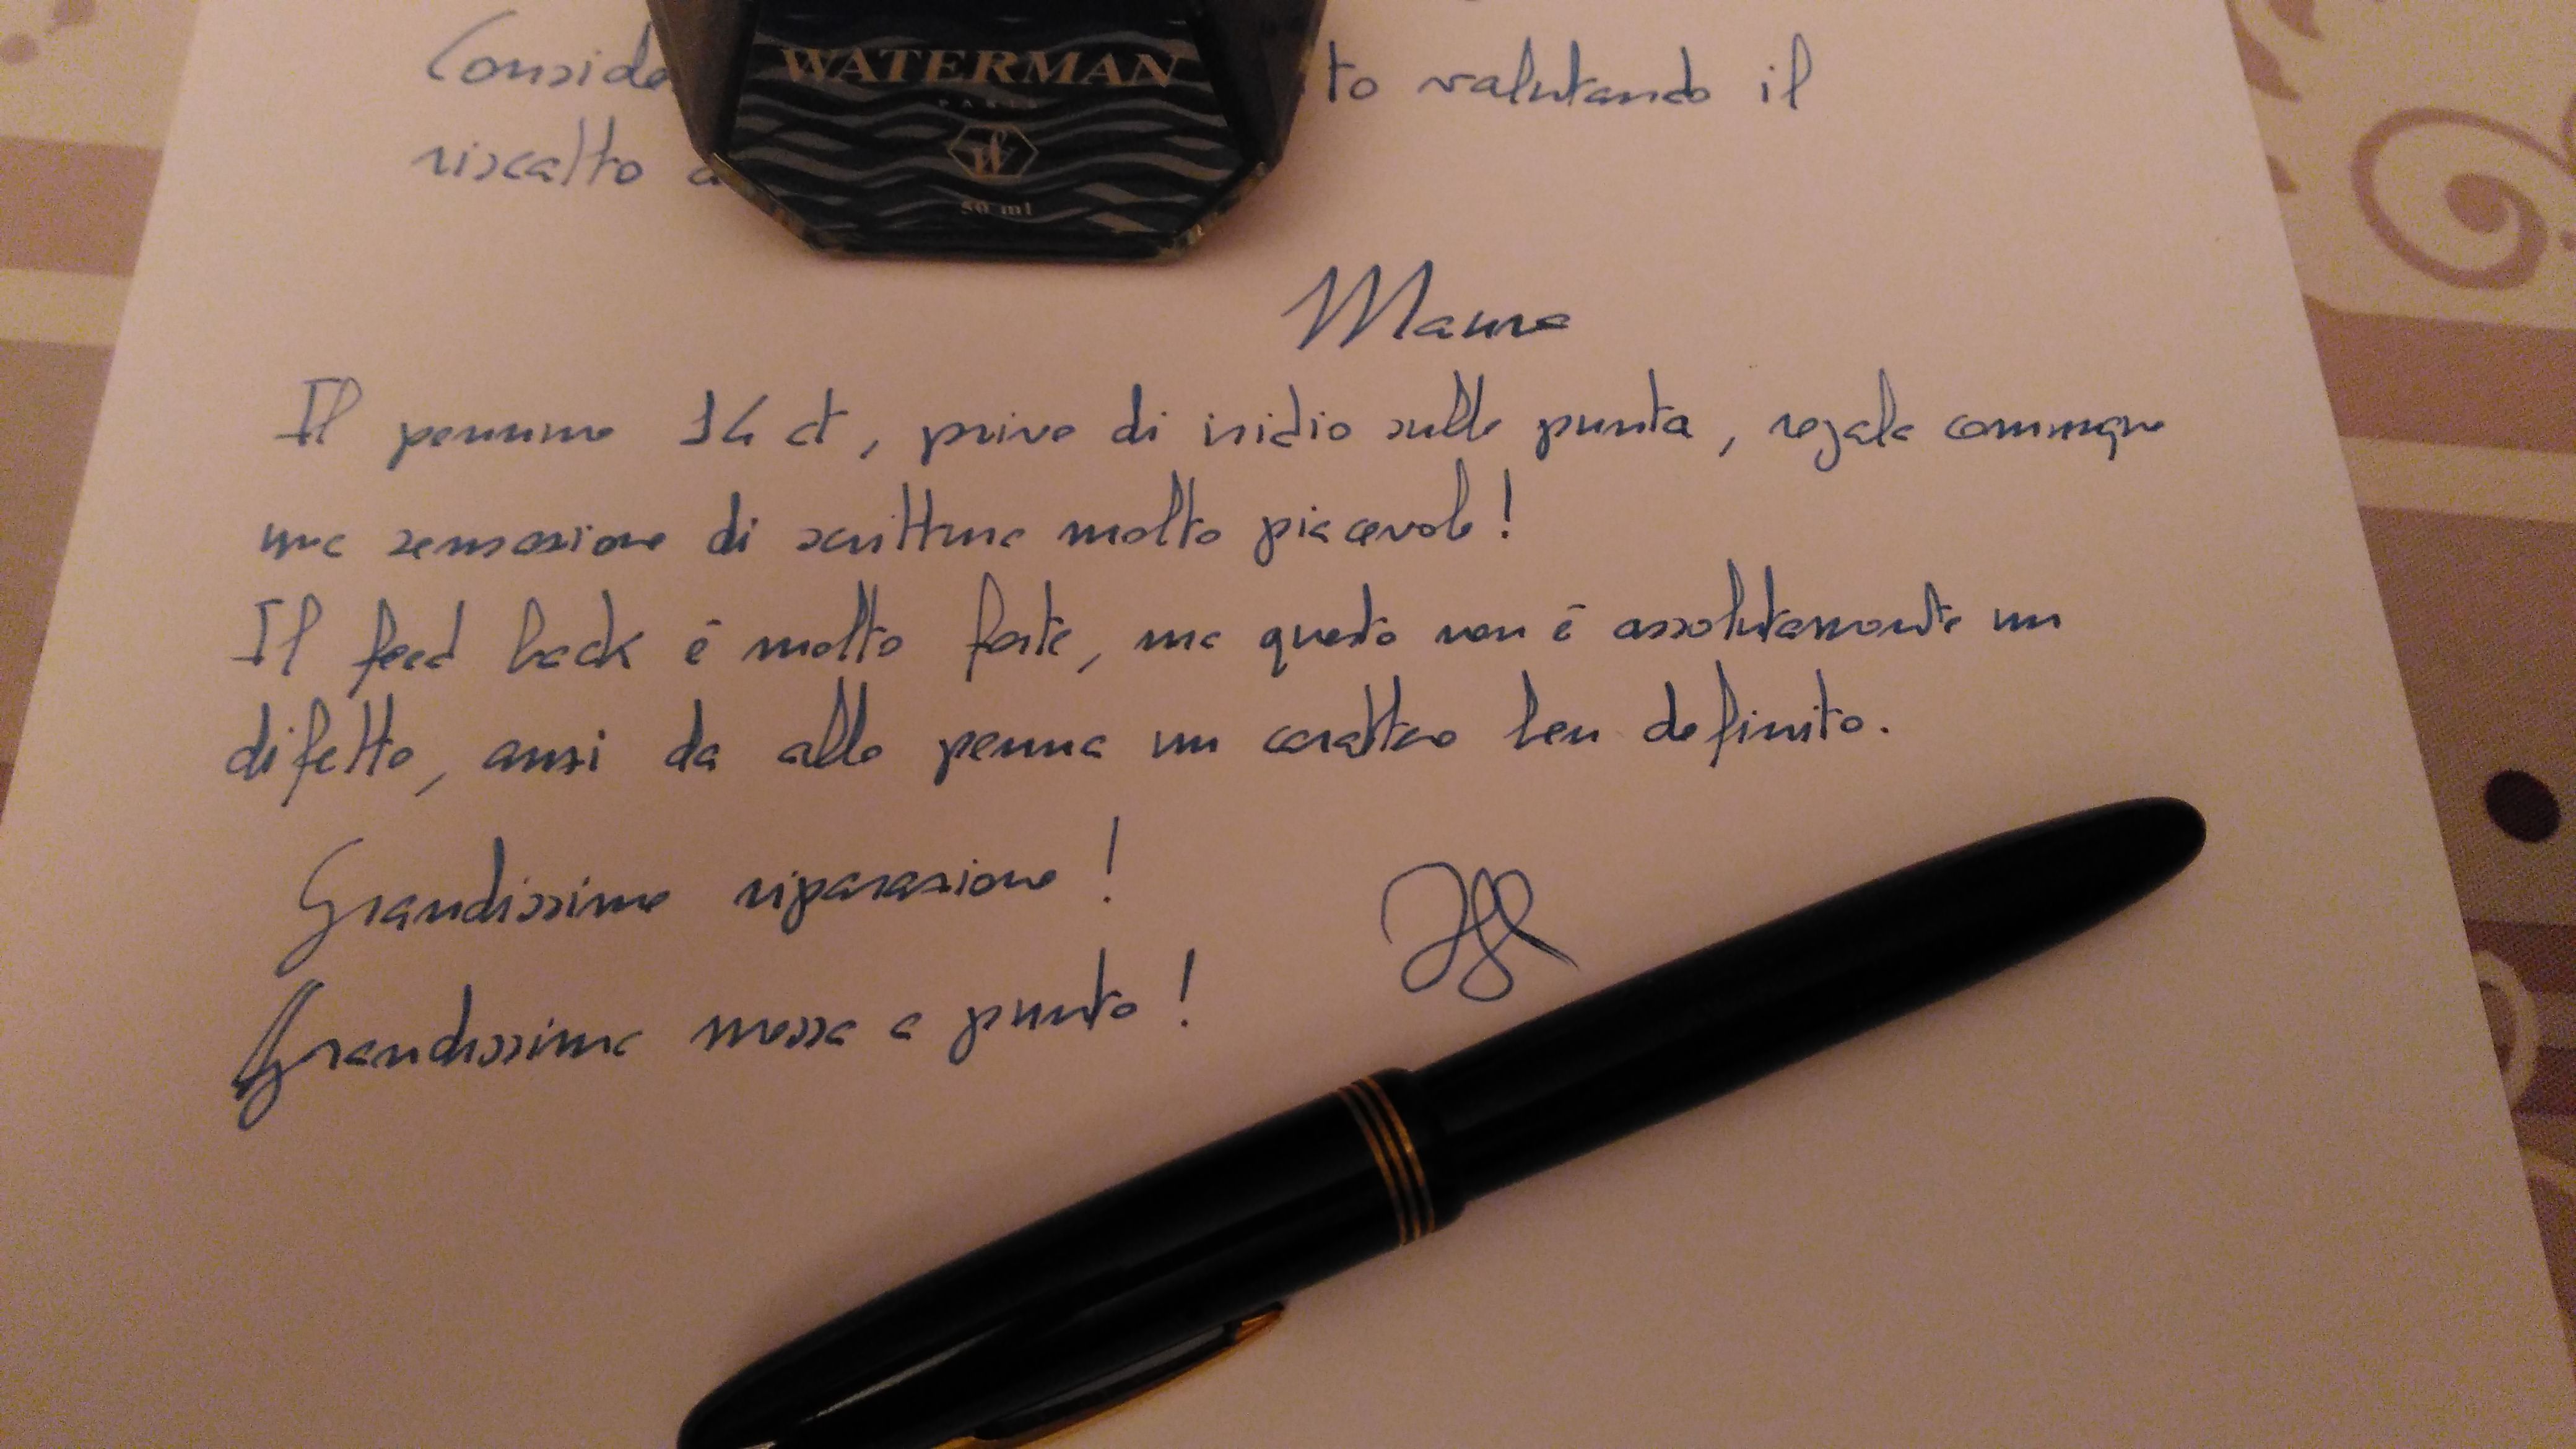 Conside to valutando il
riscatto a
WATERMAN
PARIS
W
50 ml
Mauro
Il pennino 14 ct, privo di iridio sulla punta, regala comunque
una sensazione di scrittura molto piacevole!
Il feed back è molto forte, ma questo non è assolutamente un
difetto, anzi da alla penna un carattere ben definito.
Grandissima riparazione!
Grandissima messa a punto!